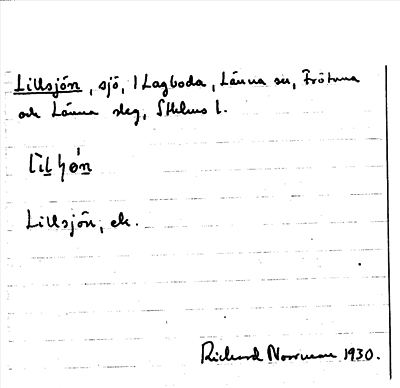 Lillsjön, sjö, 1 Lagboda, Länna sn, Frötuna
och Länna slg, Sthlms l.
Lillsjön, ek.
Richard Norrman 1930.